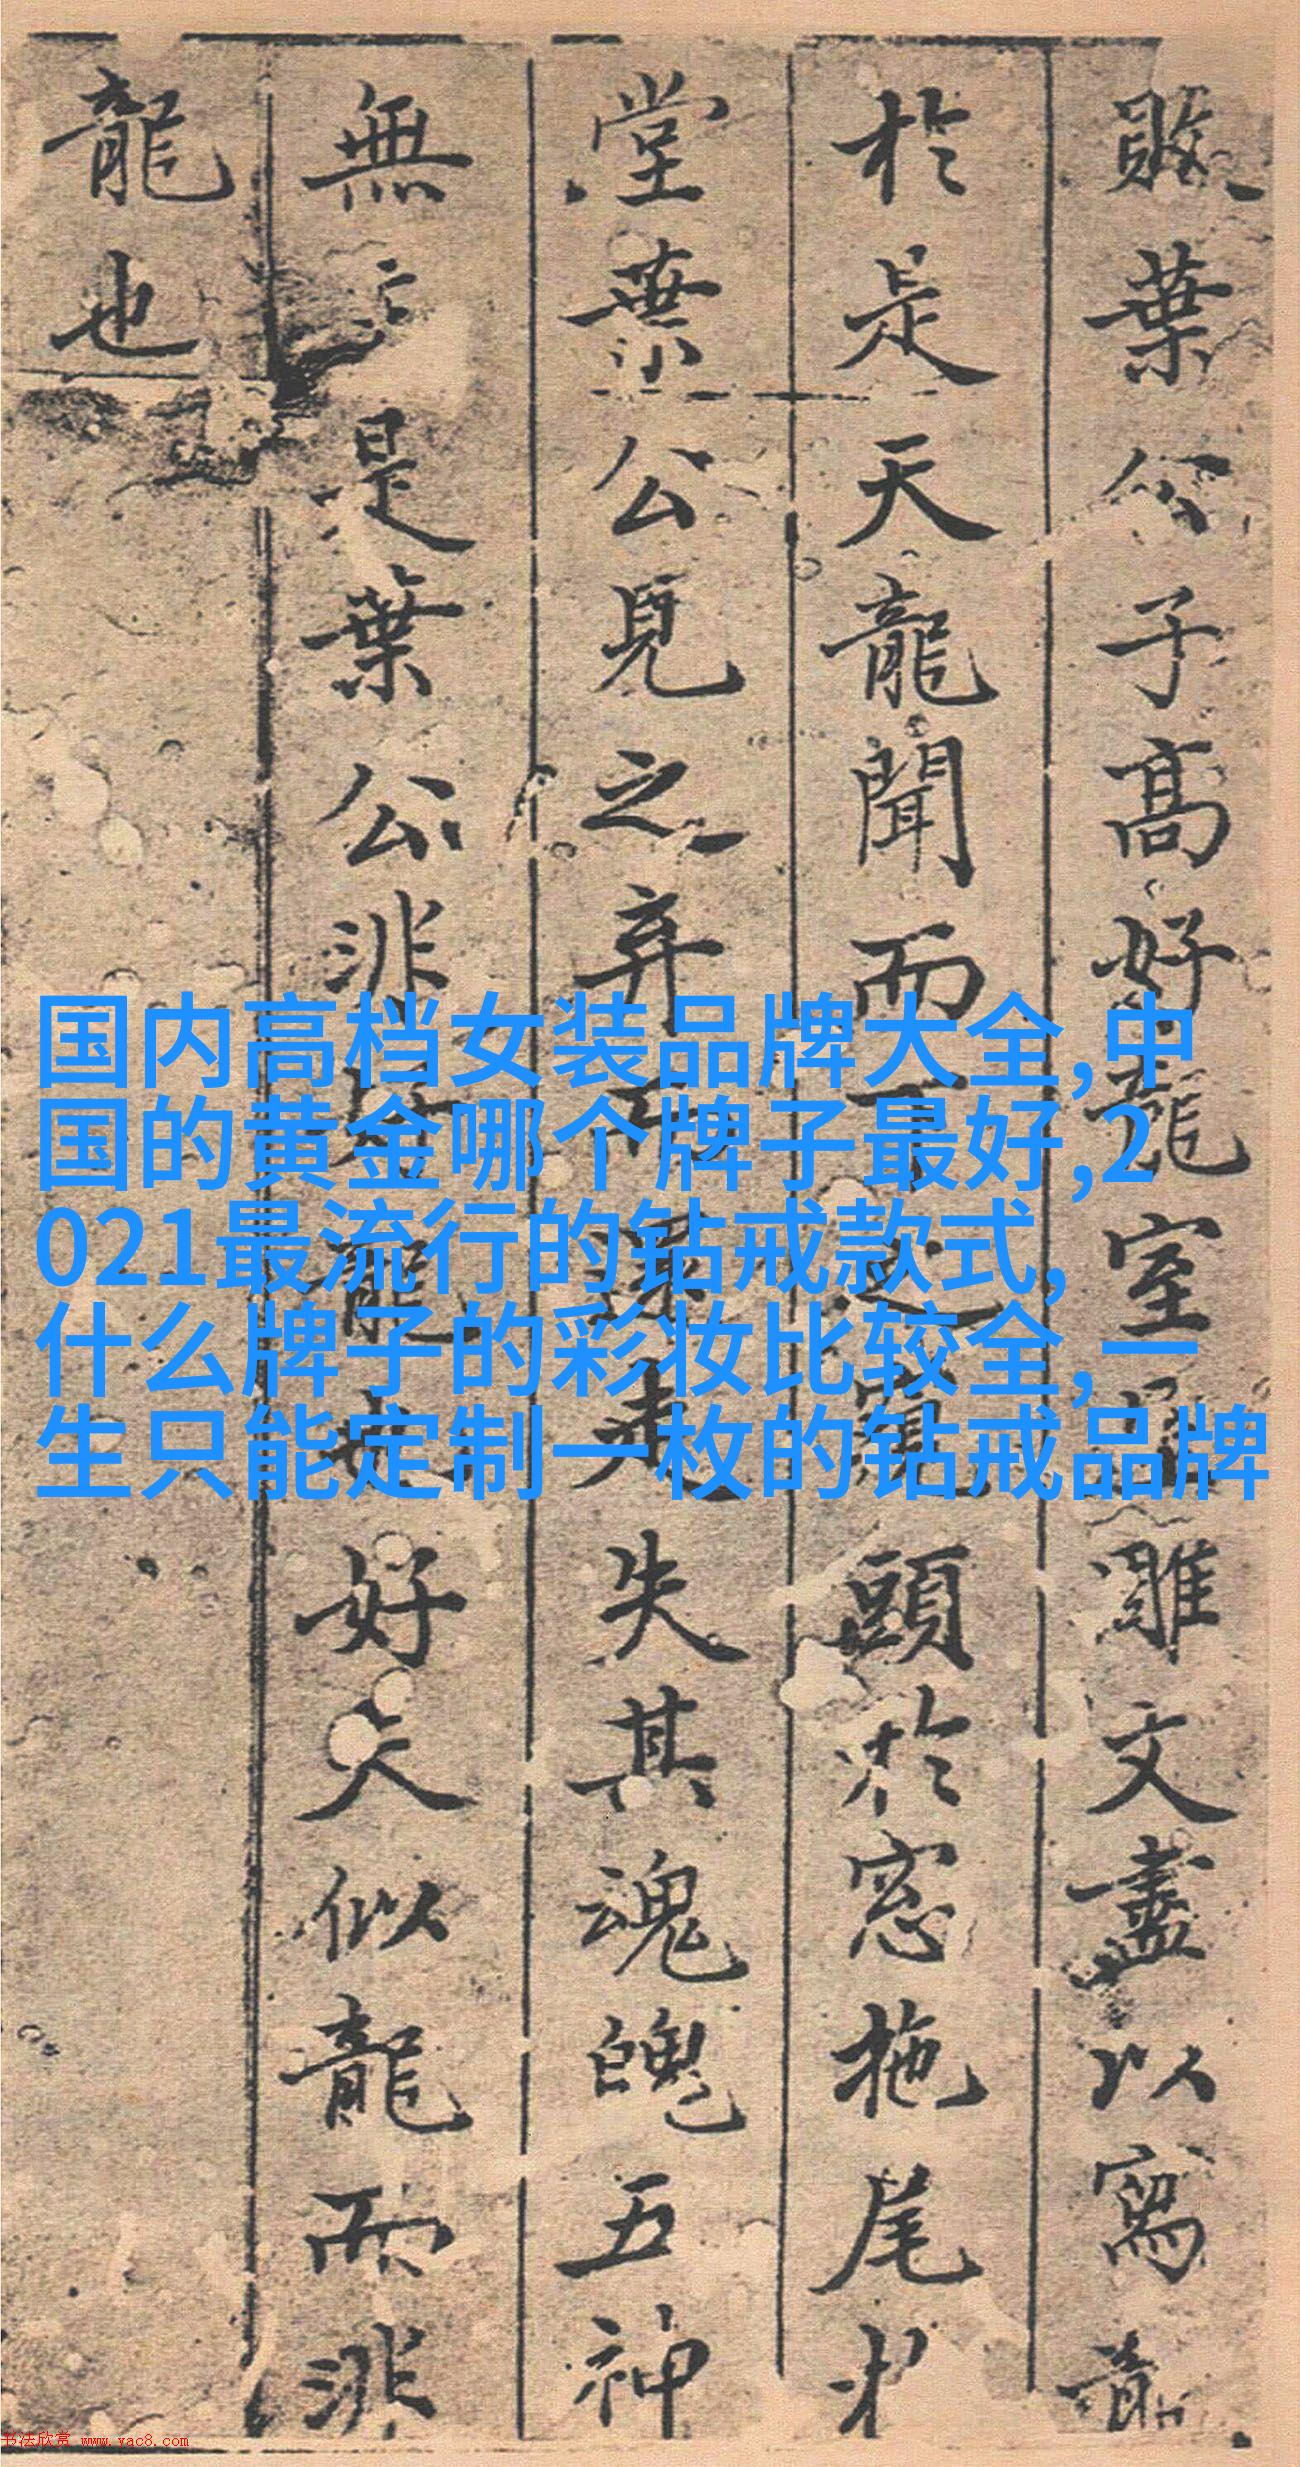 敗葉公子高好龍室屋雕文盡以寫龍
於是天龍聞而下之窺頭於窓拖尾於
堂葉公見之弃而還走失其魂魄五神
無主是葉公非好龍也好夫似龍而非
龍也
国内高档女装品牌大全,中
国的黄金哪个牌子最好,2
021最流行的钻戒款式,
什么牌子的彩妆比较全,一
生只能定制一枚的钻戒品牌
书法欣赏 www.yac8.com